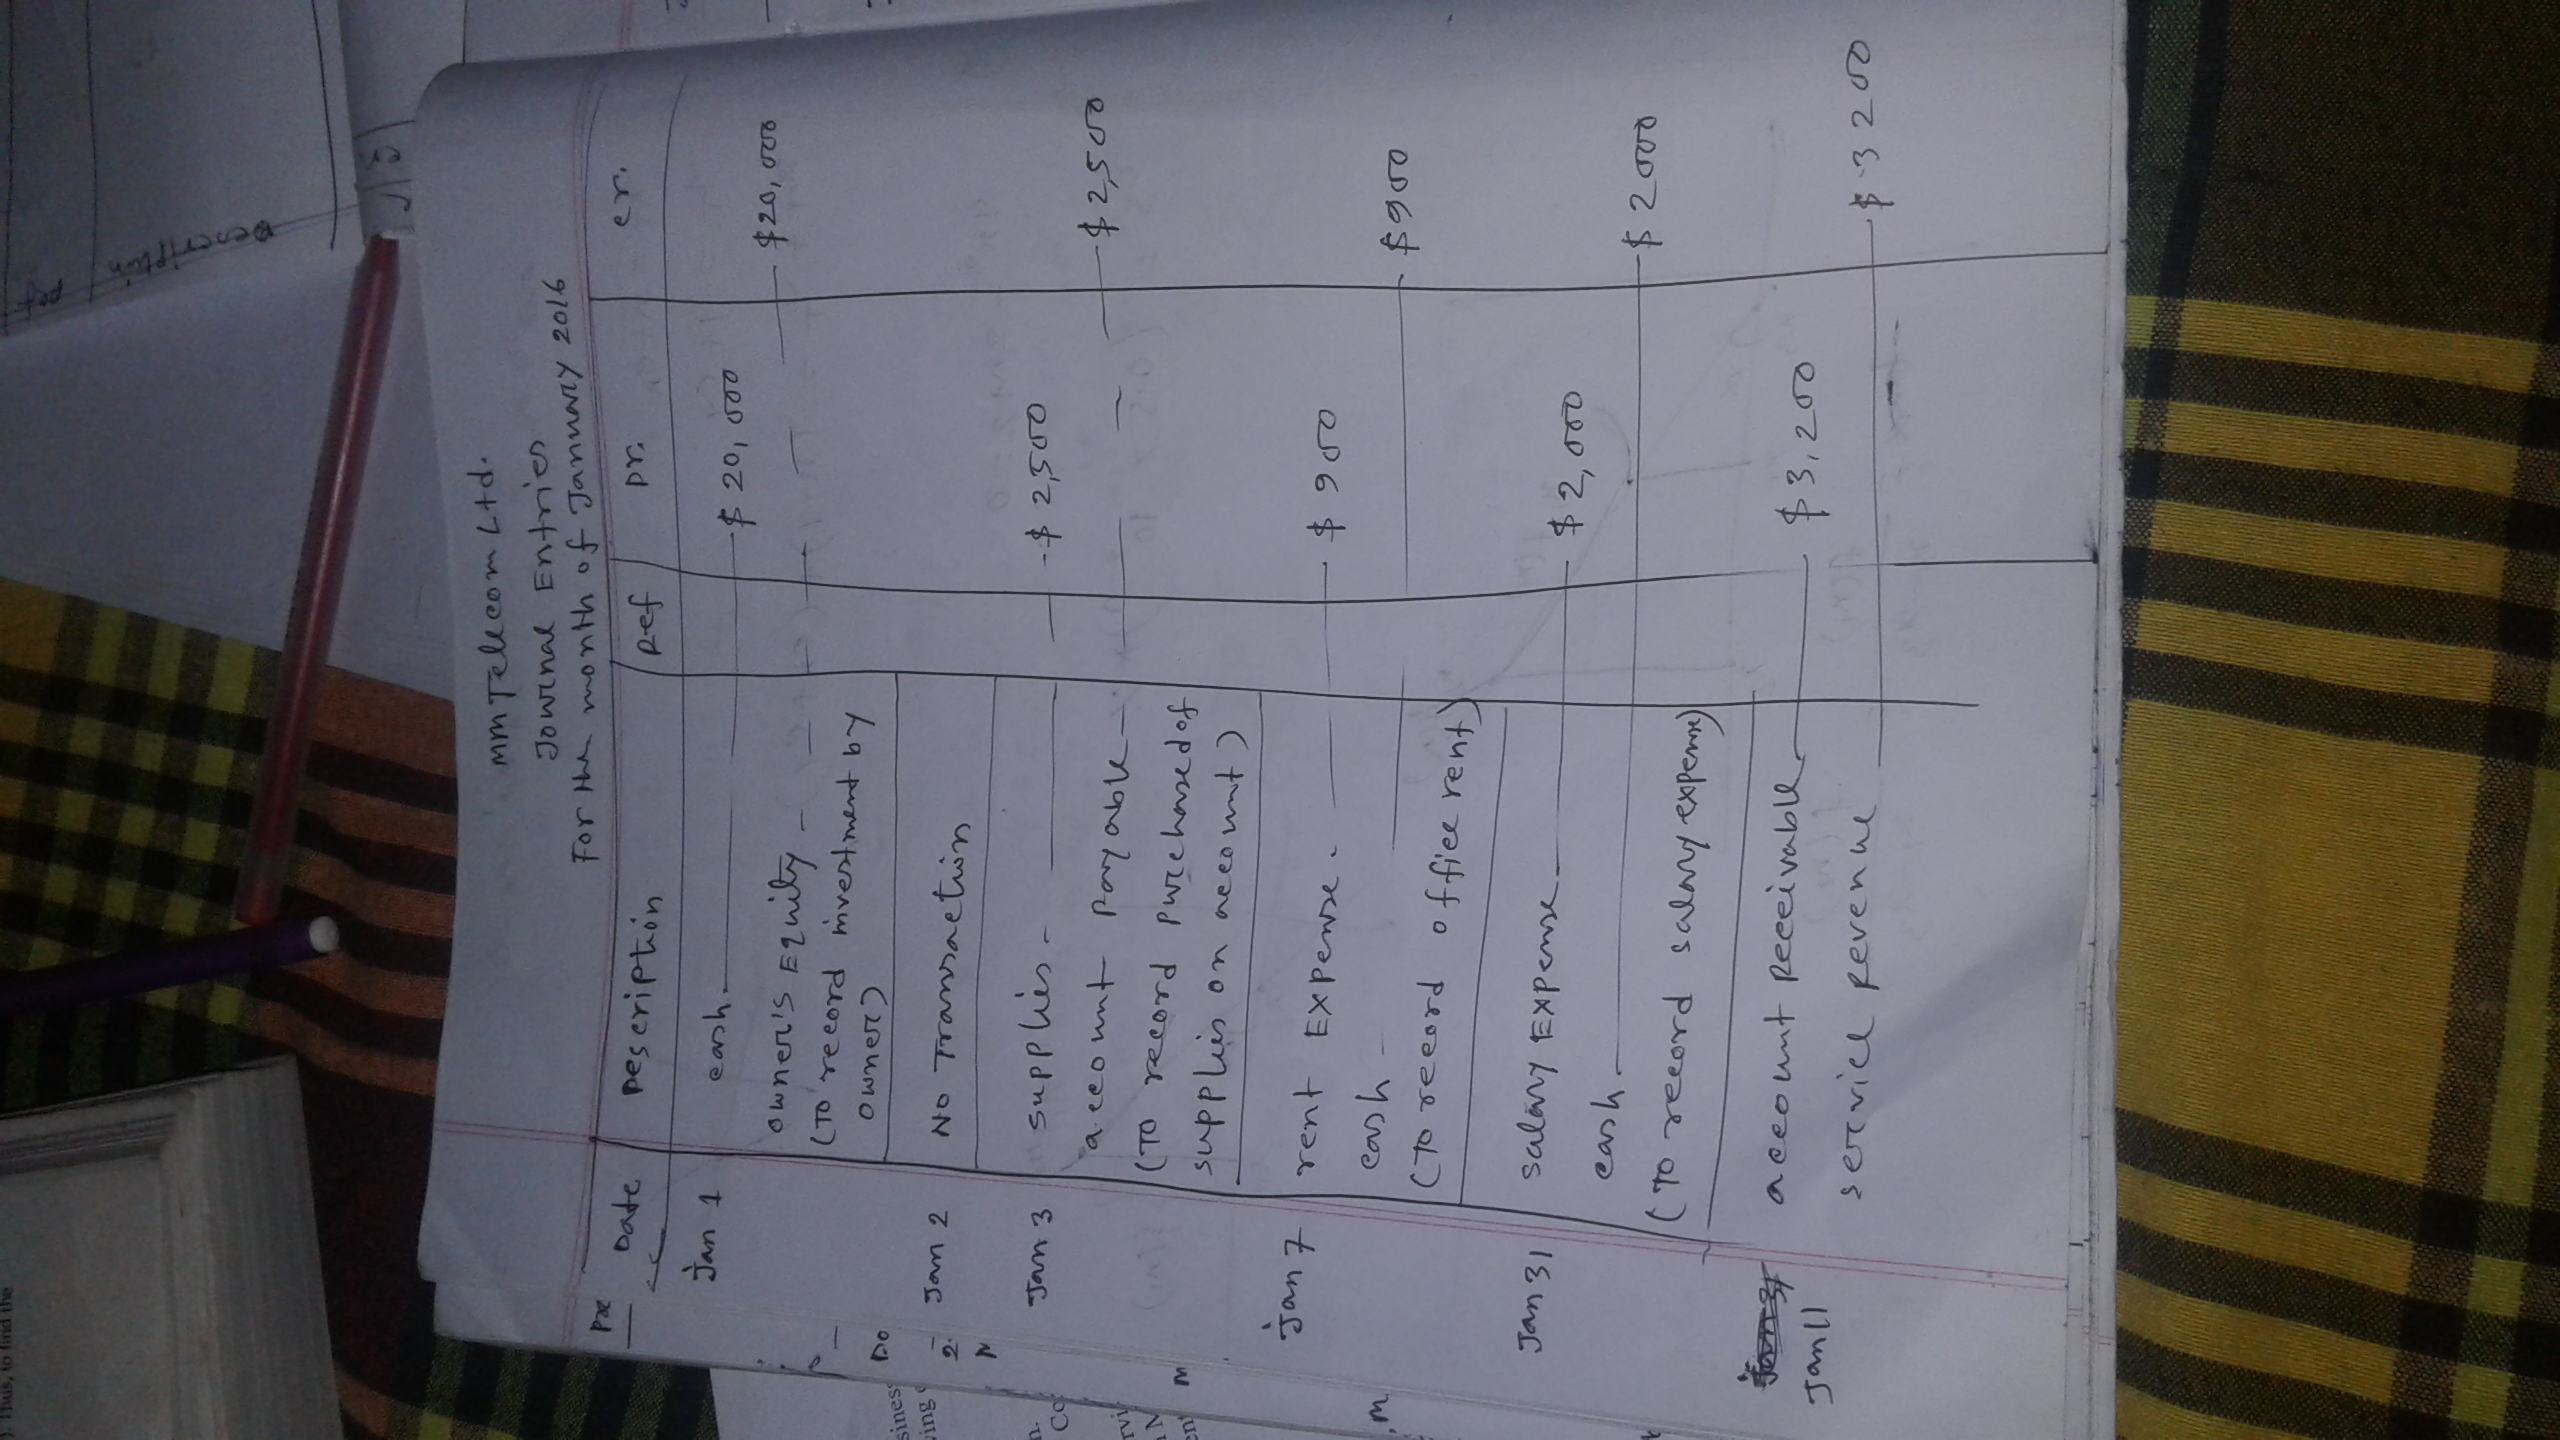 ). Thus, to find the
Post
Description
cr
MM Telecom Ltd.
Journal Entries
For the month of January 2016
Date Description Ref Dr. cr.
Jan 1 cash. $ 20,000
owner's Equity $20,000
(To record investment by
owner)
Do
Jan 2 No Transaction
2.
Jan 3 supplies $ 2,500
account Payable $2,500
(To record purchased of
supplies on account)
m
Jan 7 rent Expense. $ 900
cash $900
m
(To record office rent)
Jan 31 salary Expense $ 2,000
cash $ 2000
(To record salary expense)
Jan 31 account Receivable $3,200
Jan 11
service Revenue $ 3200